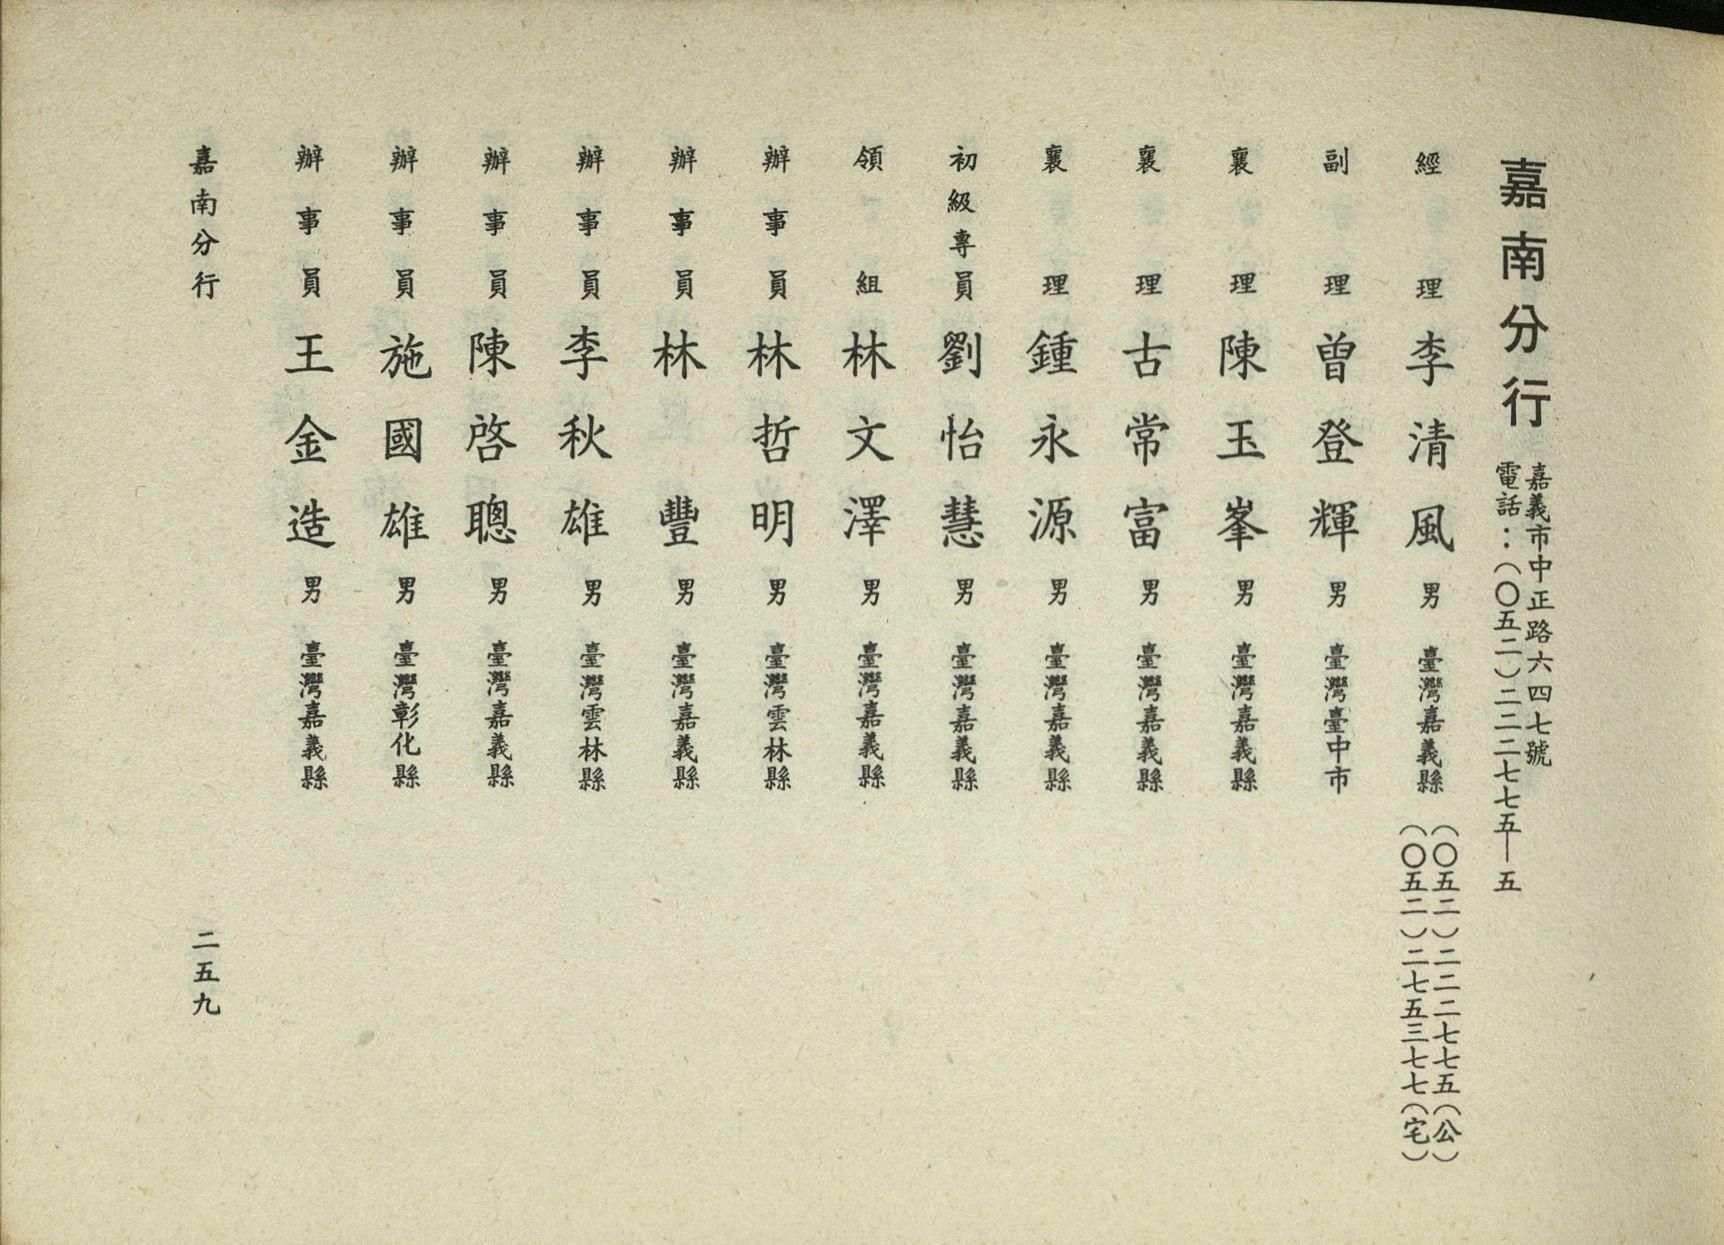 嘉南分行
嘉義市中正路六四七號
電話：（〇五二）二二二七七五—五
經理 李清風 男 臺灣嘉義縣 （〇五二）二二二七七五（公）
（〇五二）二七五三七七（宅）
副理 曾登輝 男 臺灣臺中市
襄理 陳玉峯 男 臺灣嘉義縣
襄理 古常富 男 臺灣嘉義縣
襄理 鍾永源 男 臺灣嘉義縣
初級專員 劉怡慧 男 臺灣嘉義縣
領組 林文澤 男 臺灣嘉義縣
辦事員 林哲明 男 臺灣雲林縣
辦事員 林豐 男 臺灣嘉義縣
辦事員 李秋雄 男 臺灣雲林縣
辦事員 陳啓聰 男 臺灣嘉義縣
辦事員 施國雄 男 臺灣彰化縣
辦事員 王金造 男 臺灣嘉義縣
嘉南分行
二五九